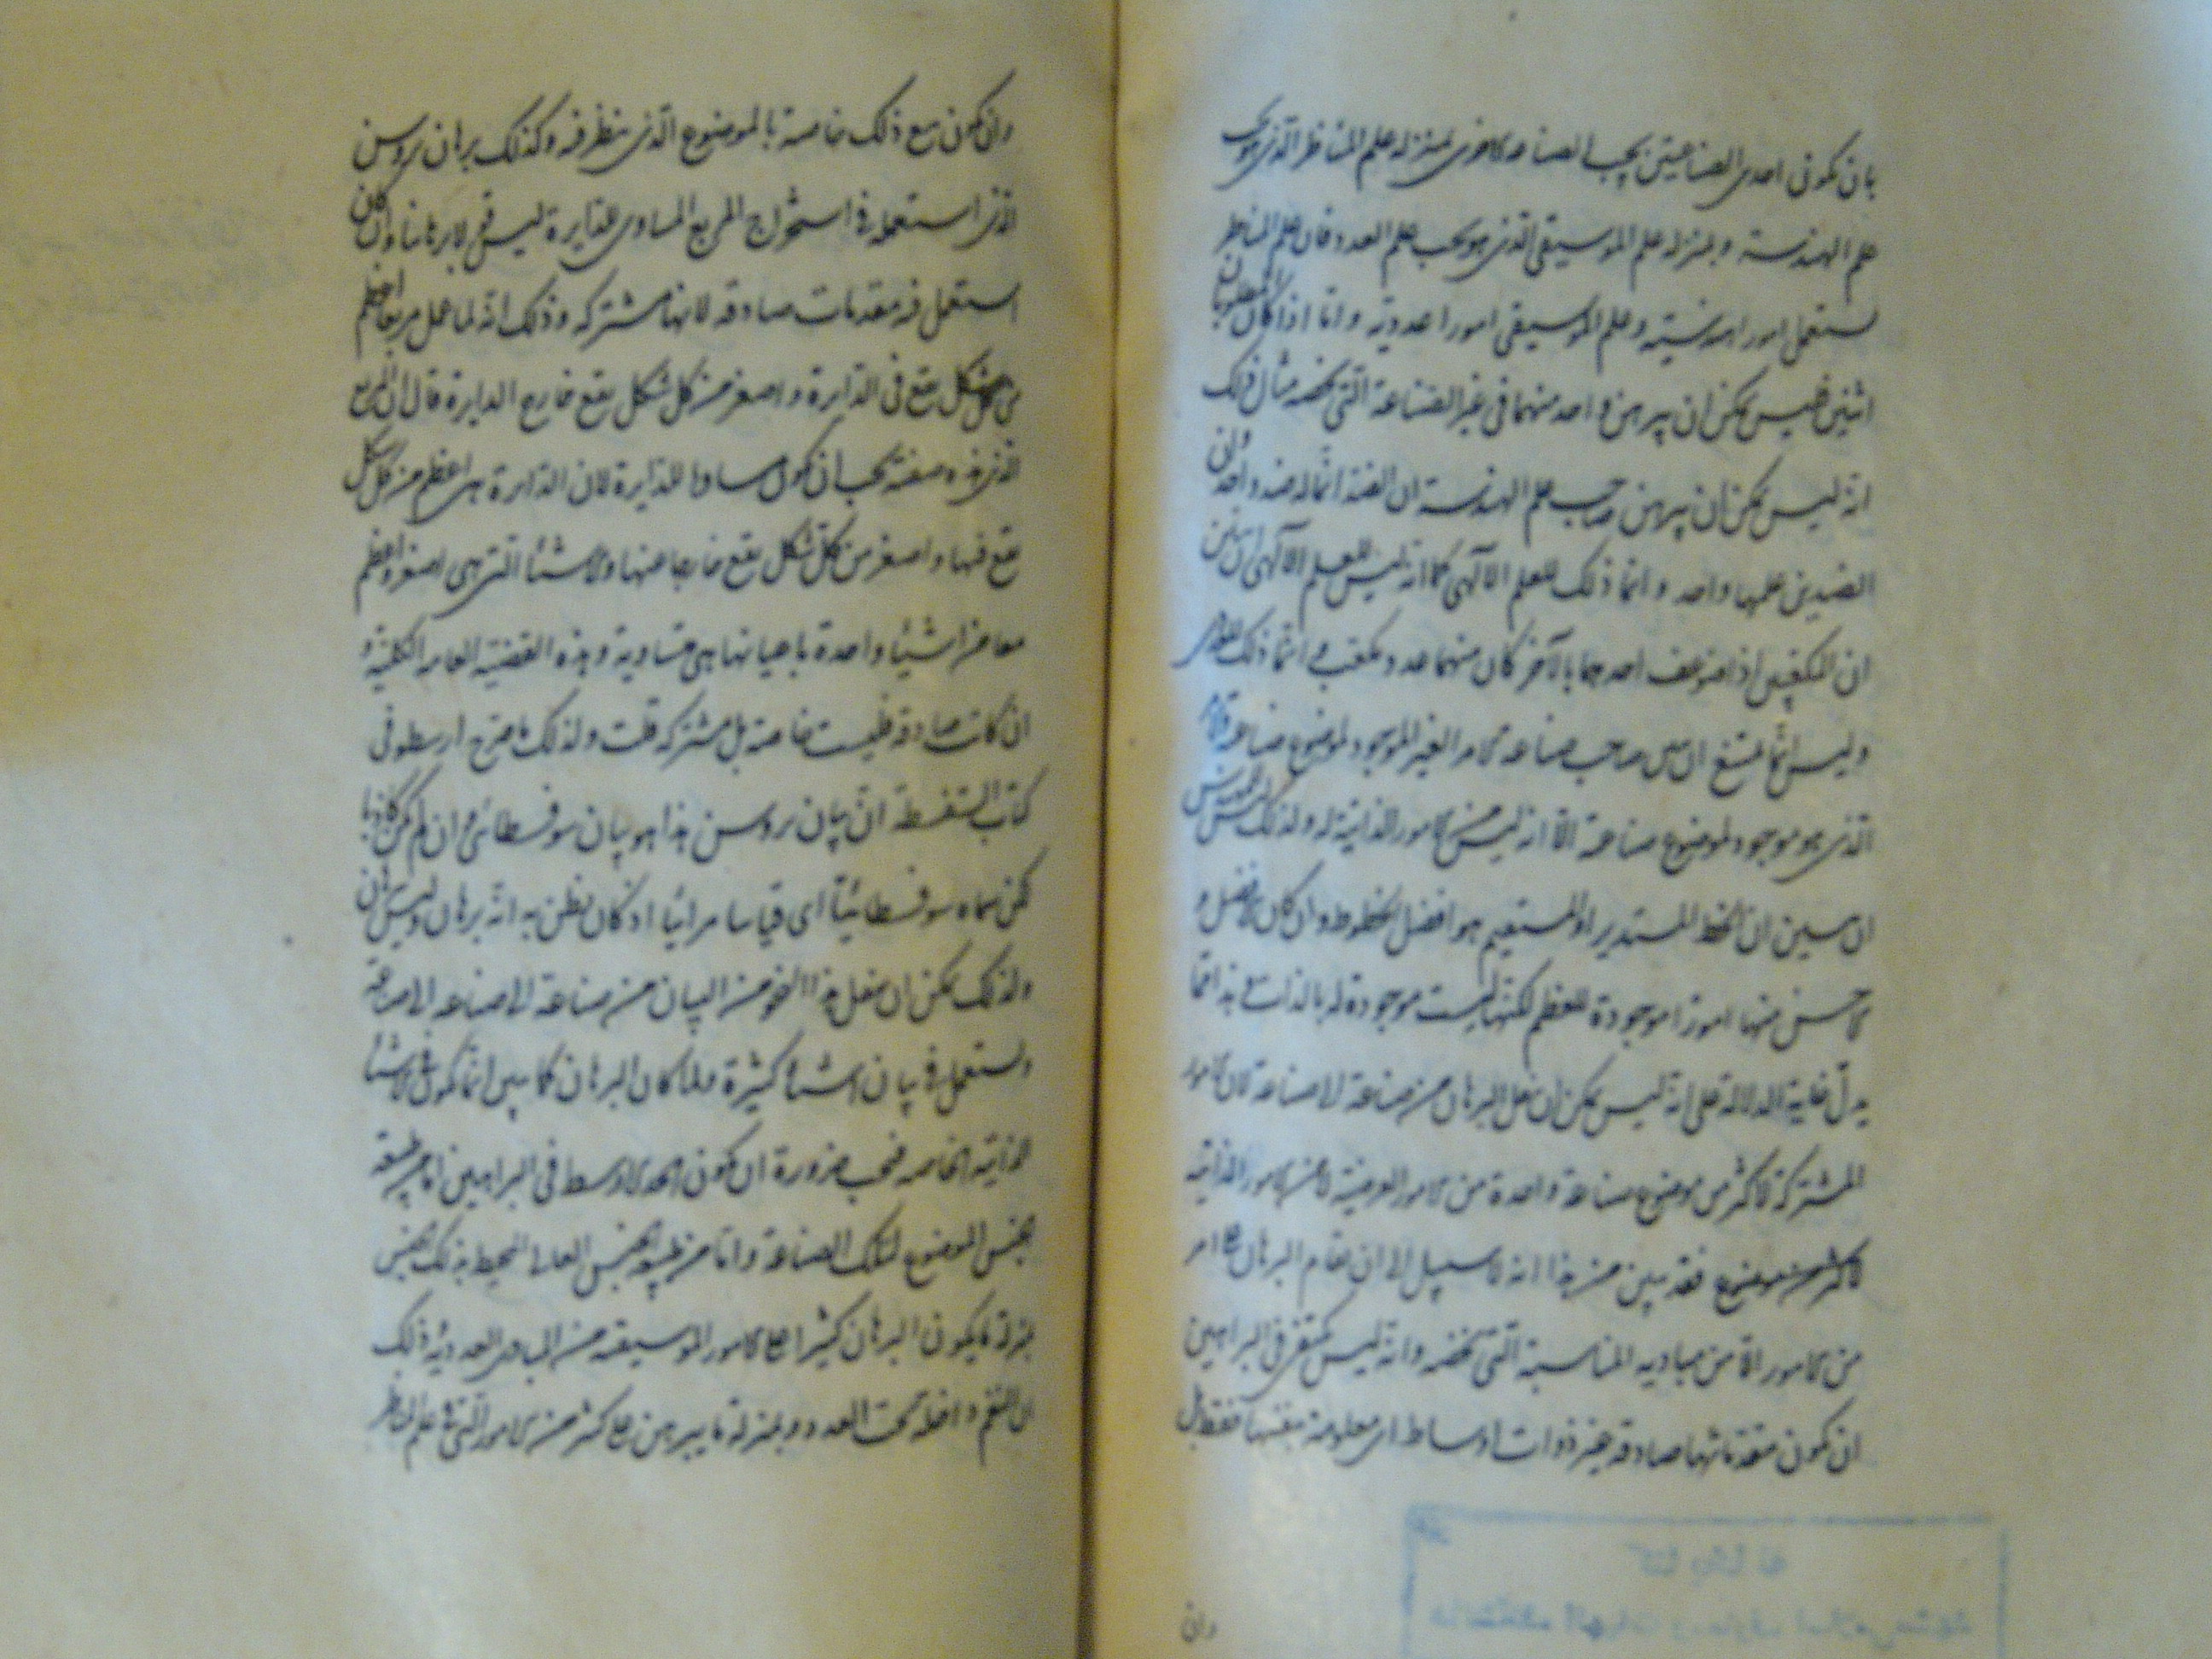 بان تكون احدى الصناعتين تحت الصناعة الاخرى بمنزلة علم المناظر الذى هو تحت
علم الهندسة وبمنزلة علم الموسيقى الذى هو تحت علم العدد فان علم المناظر
يستعمل امورا هندسية وعلم الموسيقى امورا عددية واما اذا كان المطلوبان
اثنين فليس يمكن ان يبرهن واحد منهما فى غير الصناعة التى تخصه مثال ذلك
انه ليس يمكن ان يبرهن صاحب علم الهندسة ان الضد انما له ضد واحد وان
الضدين علمهما واحد وانما ذلك للعلم الالهى كما انه ليس للعلم الالهى ان يبين
ان المكعبين اذا ضوعف احدهما بالآخر كان منهما عدد مكعب وانما ذلك للعددى
وليس انما يمتنع ان يبين صاحب صناعة الامر الغير الموجود لموضوع صناعته
الذى هو موجود لموضوع صناعته الا انه ليس من الامور الذاتية له ولذلك ليس للمهندس
ان يبين ان الخط المستدير او المستقيم هو افضل الخطوط وان كان الافضل و
الاحسن منها امورا موجودة للعظم لكنها ليست موجودة له بالذات وهذا مما
يدل غاية الدلالة على انه ليس يمكن ان ينقل البرهان من صناعة الى صناعة لان الامور
المشتركة لاكثر من موضوع صناعة واحدة من الامور العرضية لا من الامور الذاتية
لاكثر من موضوع فقد تبين من هذا انه لا سبيل الى ان يقام البرهان على امر
من الامور الا من مباديه المناسبة التى تخصه وانه ليس يكتفى فى البراهين
ان تكون مقدماتها صادقة غير ذوات اوساط اى معلومة بنفسها فقط بل
وان
وان تكون مع ذلك خاصة بالموضوع الذى ينظر فيه وكذلك برهان بروسن
الذى استعمله فى استخراج المربع المساوى للدايرة ليس هو برهانا وان كان
استعمل فيه مقدمات صادقة لانها مشتركة وذلك انه لما عمل مربعا اعظم
من كل شكل يقع فى الدايرة واصغر من كل شكل يقع خارج الدايرة قال ان المربع
الذى هذه صفته يجب ان يكون مساويا للدايرة لان الدايرة هى اعظم من كل شكل
يقع فيها واصغر من كل شكل يقع خارجا عنها والاشياء التى هى اصغر واعظم
معا من اشياء واحدة باعيانها هى متساوية وهذه القضية العامة الكلية و
ان كانت صادقة فليست خاصة بل مشتركة قلت ولذلك ما صرح ارسطو فى
كتاب السفسطة ان بيان بروسن هذا هو بيان سوفسطائى وان لم يكن كاذبا
لكن سماه سوفسطائيا اى قياسا مرائيا اذ كان يظن به انه برهان وليس ببرهان
ولذلك يمكن ان ينقل هذا النحو من البيان من صناعة الى صناعة
ويستعمل فى بيان اشياء كثيرة فلما كان البرهان كما تبين انما يكون على الاشياء
الذاتية الخاصة فيجب ضرورة ان يكون الحد الاوسط فى البراهين اما من طبيعة
الجنس الموضوع لتلك الصناعة واما من طبيعة الجنس العالى المحيط بذلك الجنس
بمنزلة ما يكون البرهان كثيرا على الامور الموسيقية من المبادى العددية وذلك
ان النغم داخلة تحت العدد وبمنزلة ما يبرهن على كثير من الامور التى فى علم المناظر